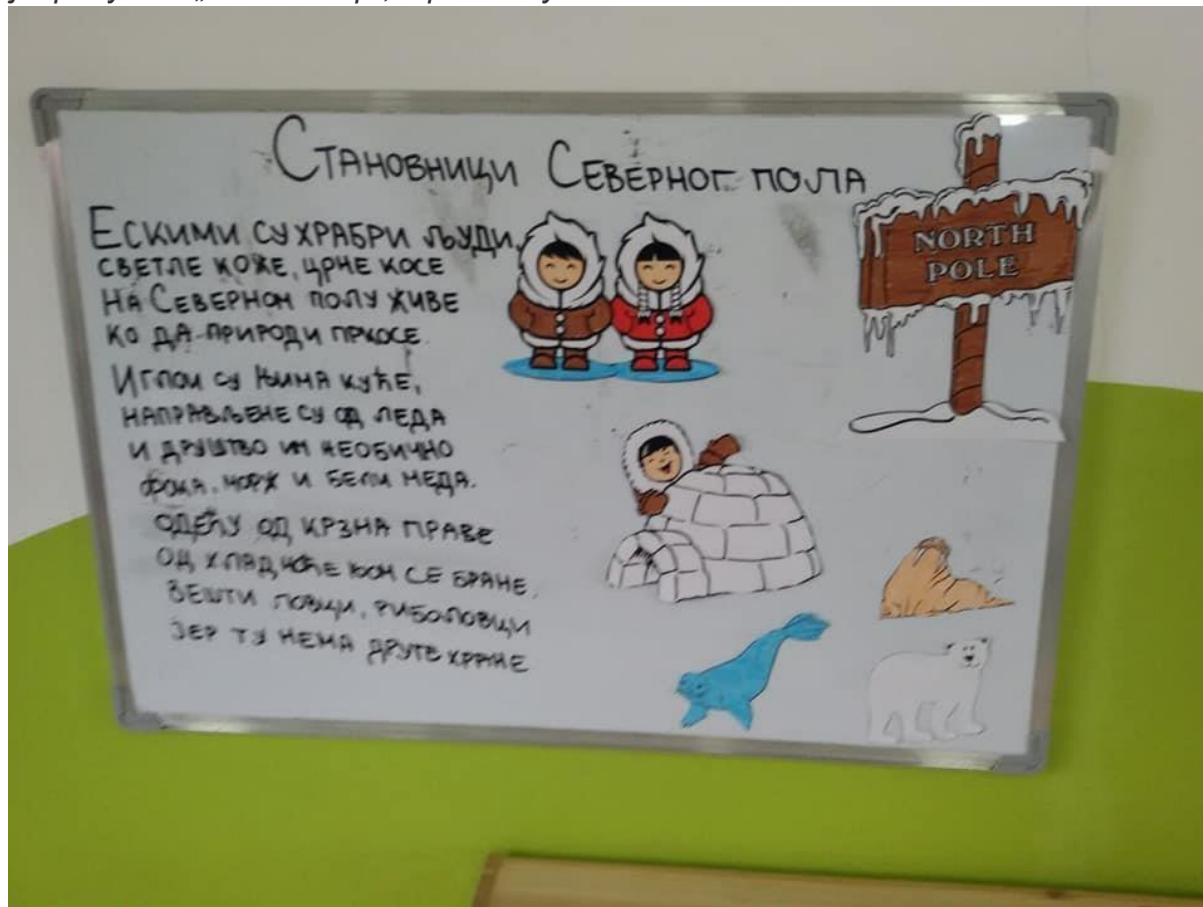 Становници Северног пола
Ескими су храбри људи,
светле коже, црне косе
на Северном полу живе
ко да природи пркосе.
Иглои су њима куће,
направљене су од леда
и друштво им необично
фока, морж и бели меда.
Одећу од крзна праве
од хладноће њом се бране.
Вешти ловци, риболовци
јер ту нема друге хране
NORTH
POLE